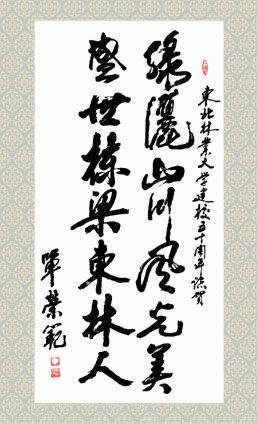 東北林業大学建校五十周年誌賀
绿灑山川風光美
盛世栋梁東林人
單榮範